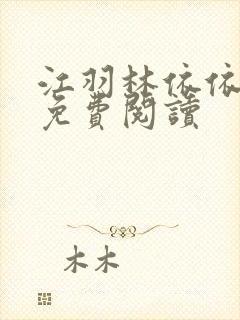 江羽林依依
免費閱讀
木木